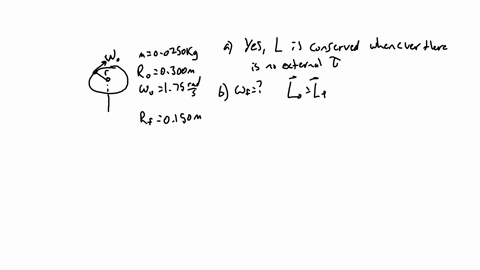 ω₀
r
m=0.0250Kg
R₀=0.300m
ω₀=1.75 rad/s
R_f=0.150m
a) Yes, L is conserved whenever there
is no external τ
b) ω_f=? L⃗₀=L⃗_f